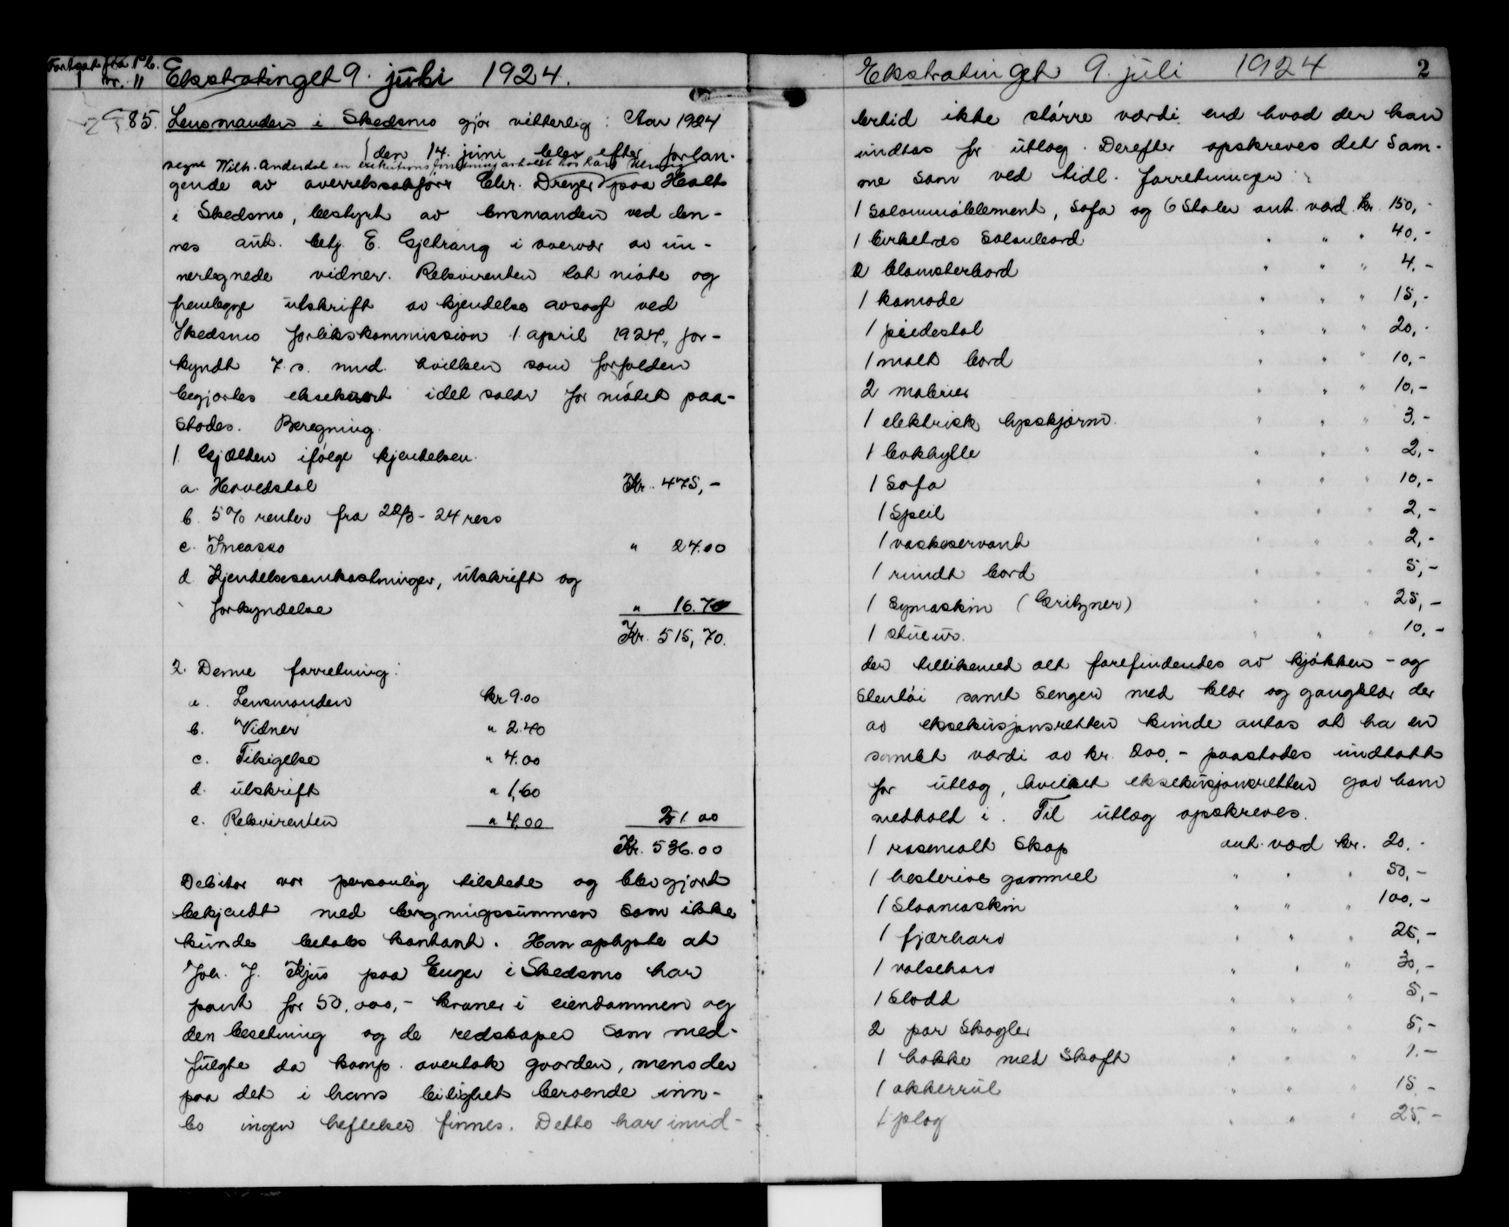 Fortsat fra Pb.
1 nr. 11
Ekstratinget 9. juli 1924.
285. Lensmanden i Skedsmo gjør vitterlig: Aar 1924
den 14. juni blev efter forlan-
gende av overretssakfører Chr. Dreyer paa Holt
i Skedsmo, bestyrt av lensmanden ved den-
nes aut. betj. E. Gjetrang i overvær av un-
nertegnede vidner. Rekvirenten lot møte og
fremlegge utskrift av kjendelse avsagt ved
Skedsmo forlikskommission 1 april 1924, for-
kyndt 7. s. mnd. hvilken som forfalden
begjærtes eksekvert idet salær for møtet paa-
stodes. Beregning.
1. Gjælden ifølge kjendelsen.
a. Hovedstol Kr. 475,-
b. 5% renter fra 22/3-24 reso
c. Incasso " 24.00
d. Kjendelsesomkostninger, utskrift og
forkyndelse " 16.70
Kr. 515,70.
2. Denne forretning:
a. Lensmanden kr 9.00
b. Vidner " 2.40
c. Tilsigelse " 4.00
d. utskrift " 1,60
e. Rekvirenten " 4,00 21 00
Kr. 536.00
Debitor var personlig tilstede og blev gjort
bekjendt med beregningssummen som ikke
kunde betales kontant. Han oplyste at
Joh. J. Kjus paa Enger i Skedsmo har
pant for 50.000,- kroner i eiendommen og
den besetning og de redskaper som med-
fulgte da komp. overtok gaarden, mens der
paa det i hans leilighet beroende inn-
bo ingen heftelser finnes. Dette har imid-
Ekstratinget 9. juli 1924 2
lertid ikke større værdi end hvad der kan
undtas for utlæg. Derefter opskreves det sam-
me som ved tidl. forretninger:
1 salonmøblement, sofa og 6 stoler ant. værd kr. 150,-
1 birketræs salonbord " " " 40,-
2 blomsterbord " " " 4,-
1 komode " " " 15,-
1 piedestal " " " 20,-
1 malt bord " " " 10,-
2 malerier " " " 10,-
1 elektrisk lysskjærm " " " 3,-
1 bokhylle " " " 2,-
1 sofa " " " 10,-
1 speil " " " 2,-
1 vaskeservant " " " 2,-
1 rundt bord " " " 5,-
1 symaskin (Gritzner) " " " 25,-
1 stueur. " " " 10,-
der tillikemed alt forefindendes av kjøkken- og
stentøi samt senger med klær og gangklær der
av eksekusjonsretten kunde antas at ha en
samlet værdi av kr. 200,- paastodes undtatt
for utlæg, hvilket eksekusjonsretten gav ham
medhold i. Til utlæg opskreves.
1 rosemalt skap ant. værd kr. 20,-
1 hesterive gammel " " " 50,-
1 slaamaskin " " " 100,-
1 fjærharv " " " 25,-
1 valseharv " " " 30,-
1 slodd " " " 5,-
2 par skogler " " " 5,-
1 hakke med skaft " " " 1,-
1 akkerrul " " " 15,-
1 plog " " " 25,-